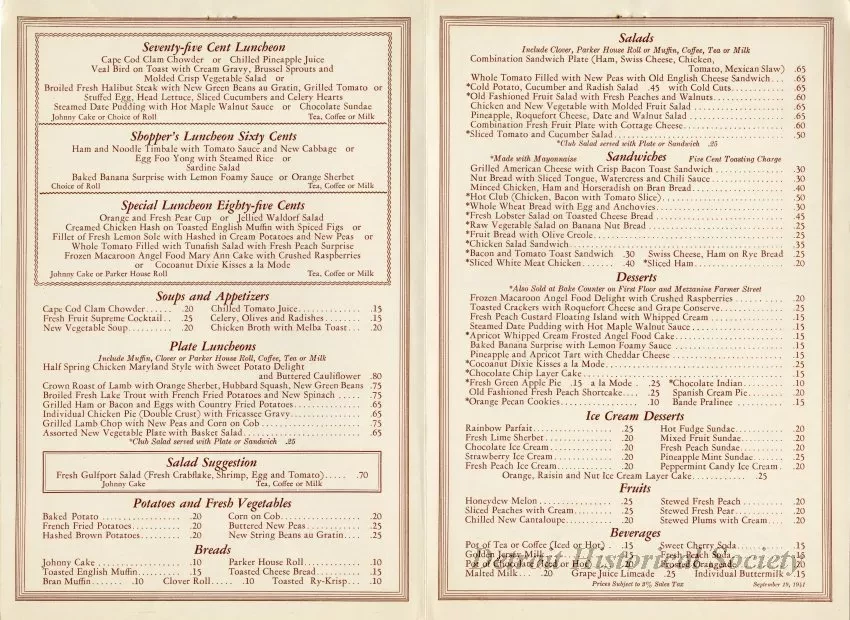 Seventy-five Cent Luncheon
Cape Cod Clam Chowder or Chilled Pineapple Juice
Veal Bird on Toast with Cream Gravy, Brussel Sprouts and
Molded Crisp Vegetable Salad or
Broiled Fresh Halibut Steak with New Green Beans au Gratin, Grilled Tomato or
Stuffed Egg, Head Lettuce, Sliced Cucumbers and Celery Hearts
Steamed Date Pudding with Hot Maple Walnut Sauce or Chocolate Sundae
Johnny Cake or Choice of Roll Tea, Coffee or Milk
Shopper's Luncheon Sixty Cents
Ham and Noodle Timbale with Tomato Sauce and New Cabbage or
Egg Foo Yong with Steamed Rice or
Sardine Salad
Baked Banana Surprise with Lemon Foamy Sauce or Orange Sherbet
Choice of Roll Tea, Coffee or Milk
Special Luncheon Eighty-five Cents
Orange and Fresh Pear Cup or Jellied Waldorf Salad
Creamed Chicken Hash on Toasted English Muffin with Spiced Figs or
Fillet of Fresh Lemon Sole with Hashed in Cream Potatoes and New Peas or
Whole Tomato Filled with Tunafish Salad with Fresh Peach Surprise
Frozen Macaroon Angel Food Mary Ann Cake with Crushed Raspberries
or Cocoanut Dixie Kisses a la Mode
Johnny Cake or Parker House Roll Tea, Coffee or Milk
Soups and Appetizers
Cape Cod Clam Chowder...... .20 Chilled Tomato Juice............ .15
Fresh Fruit Supreme Cocktail... .25 Celery, Olives and Radishes...... .15
New Vegetable Soup.......... .20 Chicken Broth with Melba Toast... .20
Plate Luncheons
Include Muffin, Clover or Parker House Roll, Coffee, Tea or Milk
Half Spring Chicken Maryland Style with Sweet Potato Delight
and Buttered Cauliflower .80
Crown Roast of Lamb with Orange Sherbet, Hubbard Squash, New Green Beans .75
Broiled Fresh Lake Trout with French Fried Potatoes and New Spinach ..... .75
Grilled Ham or Bacon and Eggs with Country Fried Potatoes............. .65
Individual Chicken Pie (Double Crust) with Fricassee Gravy............. .65
Grilled Lamb Chop with New Peas and Corn on Cob................... .75
Assorted New Vegetable Plate with Basket Salad...................... .65
*Club Salad served with Plate or Sandwich .25
Salad Suggestion
Fresh Gulfport Salad (Fresh Crabflake, Shrimp, Egg and Tomato)..... .70
Johnny Cake Tea, Coffee or Milk
Potatoes and Fresh Vegetables
Baked Potato ................ .20 Corn on Cob.................. .20
French Fried Potatoes.......... .20 Buttered New Peas............. .25
Hashed Brown Potatoes......... .20 New String Beans au Gratin...... .25
Breads
Johnny Cake ................. .10 Parker House Roll.............. .10
Toasted English Muffin......... .15 Toasted Cheese Bread........... .15
Bran Muffin....... .10 Clover Roll..... .10 Toasted Ry-Krisp.... .10
Salads
Include Clover, Parker House Roll or Muffin, Coffee, Tea or Milk
Combination Sandwich Plate (Ham, Swiss Cheese, Chicken,
Tomato, Mexican Slaw) .65
Whole Tomato Filled with New Peas with Old English Cheese Sandwich... .65
*Cold Potato, Cucumber and Radish Salad .45 with Cold Cuts.......... .65
*Old Fashioned Fruit Salad with Fresh Peaches and Walnuts............. .60
Chicken and New Vegetable with Molded Fruit Salad .................. .65
Pineapple, Roquefort Cheese, Date and Walnut Salad .................. .65
Combination Fresh Fruit Plate with Cottage Cheese.................... .60
*Sliced Tomato and Cucumber Salad................................ .50
*Club Salad served with Plate or Sandwich .25
*Made with Mayonnaise Sandwiches Five Cent Toasting Charge
Grilled American Cheese with Crisp Bacon Toast Sandwich.............. .30
Nut Bread with Sliced Tongue, Watercress and Chili Sauce .............. .30
Minced Chicken, Ham and Horseradish on Bran Bread.................. .40
*Hot Club (Chicken, Bacon with Tomato Slice)....................... .50
*Whole Wheat Bread with Egg and Anchovies........................ .30
*Fresh Lobster Salad on Toasted Cheese Bread....................... .45
*Raw Vegetable Salad on Banana Nut Bread........................ .25
*Fruit Bread with Olive Creole.................................... .25
*Chicken Salad Sandwich........................................ .35
*Bacon and Tomato Toast Sandwich .30 Swiss Cheese, Ham on Rye Bread .25
*Sliced White Meat Chicken...... .40 *Sliced Ham................. .20
Desserts
*Also Sold at Bake Counter on First Floor and Mezzanine Farmer Street
Frozen Macaroon Angel Food Delight with Crushed Raspberries .......... .20
Toasted Crackers with Roquefort Cheese and Grape Conserve............ .25
Fresh Peach Custard Floating Island with Whipped Cream .............. .15
Steamed Date Pudding with Hot Maple Walnut Sauce ................. .15
*Apricot Whipped Cream Frosted Angel Food Cake.................... .15
Baked Banana Surprise with Lemon Foamy Sauce .................... .15
Pineapple and Apricot Tart with Cheddar Cheese ..................... .15
*Cocoanut Dixie Kisses a la Mode.................................. .25
*Chocolate Chip Layer Cake....................................... .15
*Fresh Green Apple Pie .15 a la Mode.. .25 *Chocolate Indian......... .10
Old Fashioned Fresh Peach Shortcake.... .25 Spanish Cream Pie........ .20
*Orange Pecan Cookies............... .10 Bande Pralinee .......... .15
Ice Cream Desserts
Rainbow Parfait............... .25 Hot Fudge Sundae............. .20
Fresh Lime Sherbet ............ .20 Mixed Fruit Sundae............ .20
Chocolate Ice Cream........... .20 Fresh Peach Sundae............ .20
Strawberry Ice Cream.......... .20 Pineapple Mint Sundae ......... .25
Fresh Peach Ice Cream......... .20 Peppermint Candy Ice Cream .... .20
Orange, Raisin and Nut Ice Cream Layer Cake............ .25
Fruits
Honeydew Melon ............. .25 Stewed Fresh Peach ........... .20
Sliced Peaches with Cream...... .25 Stewed Fresh Pear............. .20
Chilled New Cantaloupe........ .20 Stewed Plums with Cream....... .20
Beverages
Pot of Tea or Coffee (Iced or Hot) .15 Sweet Cherry Soda............. .15
Golden Jersey Milk............ .15 Fresh Peach Soda............. .15
Pot of Chocolate (Iced or Hot)... .20 Frosted Orangeade............. .20
Malted Milk...... .20 Grape Juice Limeade .25 Individual Buttermilk .15
Prices Subject to 3% Sales Tax September 19, 1941
Detroit Historical Society